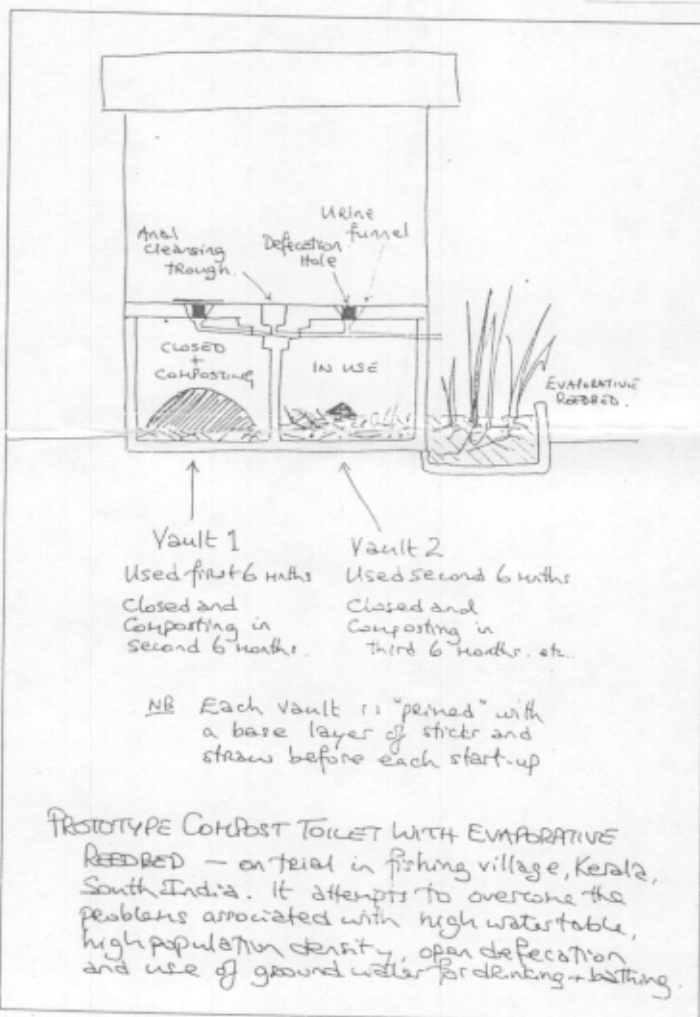 Anal
Cleansing
trough.
Defecation
Hole
Urine
funnel
CLOSED
+
COMPOSTING
IN USE
EVAPORATIVE
REEDBED.
Vault 1
Used first 6 months
Closed and
Composting in
second 6 months.
Vault 2
Used second 6 months
Closed and
Composting in
third 6 months. etc.
NB Each vault is "primed" with
a base layer of sticks and
straw before each start-up
PROTOTYPE COMPOST TOILET WITH EVAPORATIVE
REEDBED — on trial in fishing village, Kerala,
South India. It attempts to overcome the
problems associated with high water table,
high population density, open defecation
and use of ground water for drinking + bathing.